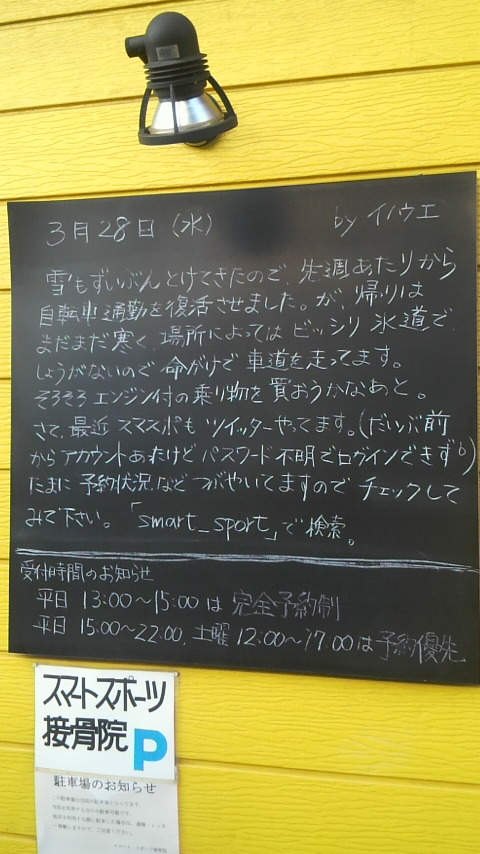 3月28日(水) by イノウエ
雪もずいぶんとけてきたので、先週あたりから
自転車通勤を復活させました。が、帰りは
まだまだ寒く、場所によってはビッシリ氷道で、
しょうがないので命がけで車道を走ってます。
そろそろエンジン付の乗り物を買おうかなあと。
さて、最近スマスポもツイッターやってます。(だいぶ前
からアカウントあったけどパスワード不明でログインできず)
たまに予約状況などつぶやいてますのでチェックして
みて下さい。「smart_sport」で検索。
受付時間のお知らせ
平日 13:00～15:00は完全予約制
平日 15:00～22:00, 土曜 12:00～17:00は予約優先
スマートスポーツ
接骨院 P
駐車場のお知らせ